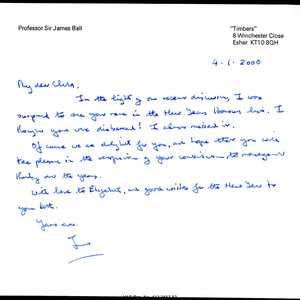 Professor Sir James Ball
"Timbers"
8 Winchester Close
Esher KT10 8QH
4-1-2000
My dear Chris,
In the light of our recent discussion, I was
surprised to see your name in the New Years Honours list. I
thought you were disbarred! I almost missed it.
Of course we are delighted for you, and hope that you will
take pleasure in the recognition of your contribution to management
the years.
With love to Elizabeth, and good wishes for the New Year to
you both.
Yours ever,
Jim